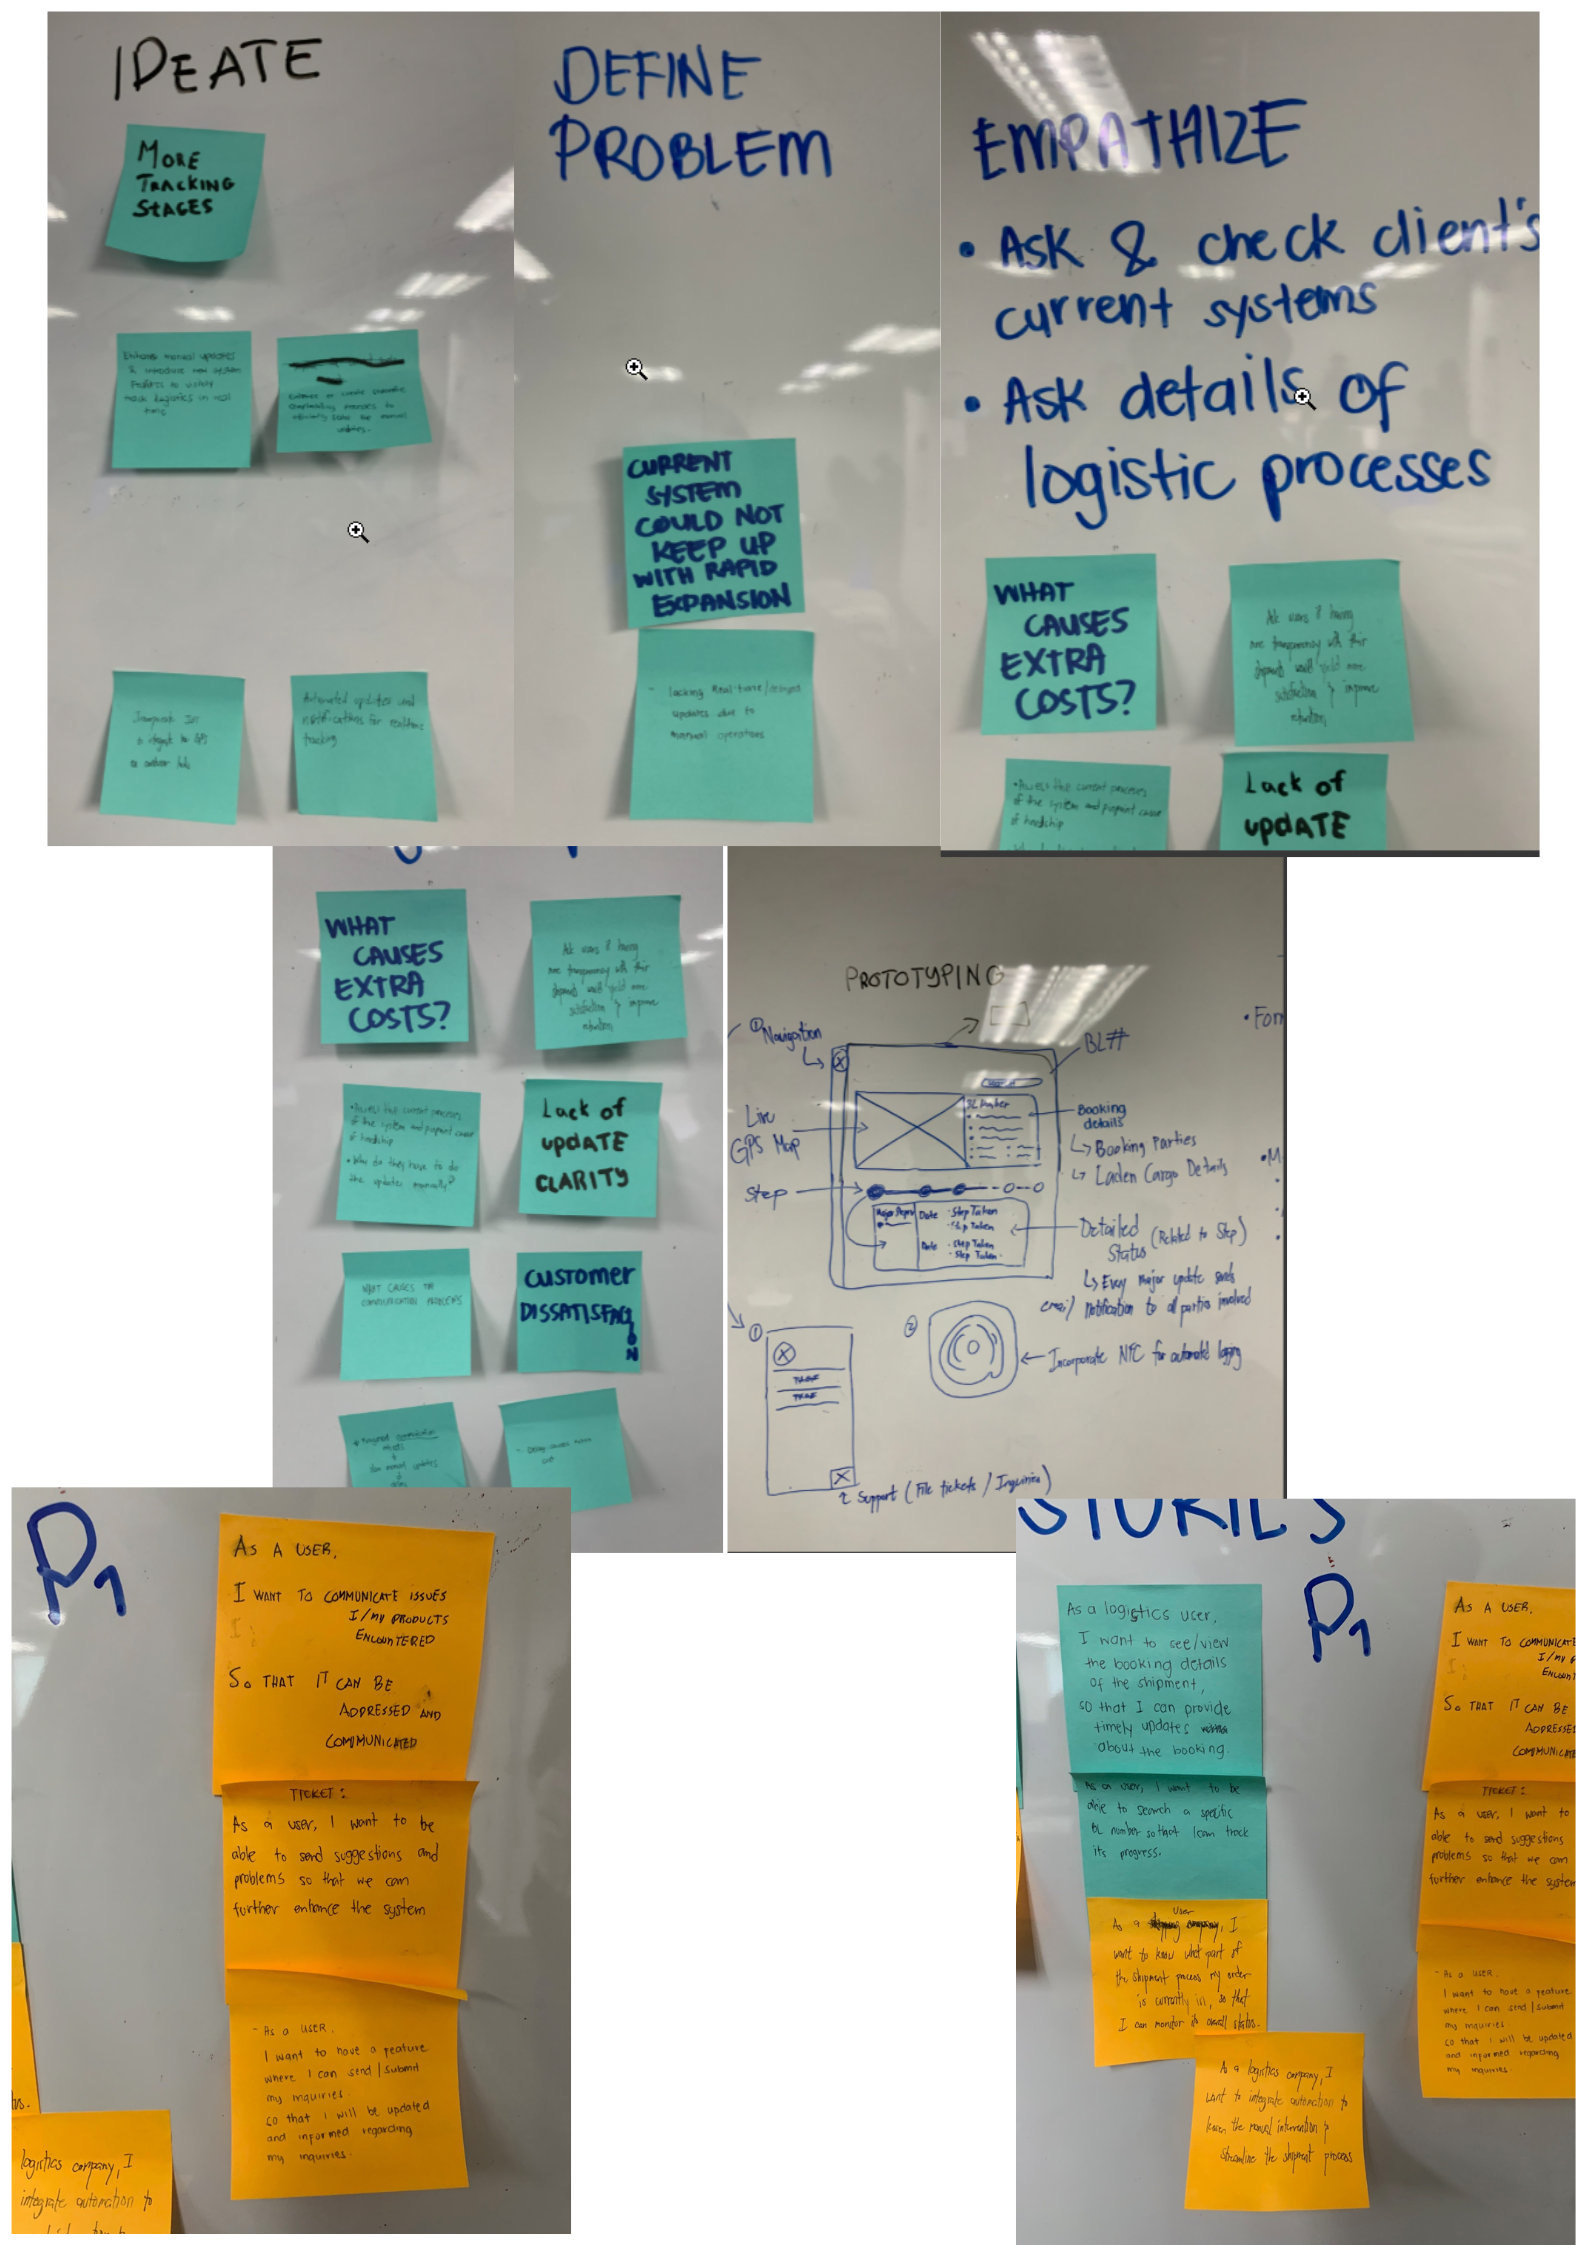 IDEATE
MORE
TRACKING
STAGES
Enhance manual updates
& introduce new system
features to
track logistics in real
time
manual
updates.
to integrate the GPS
Automated updates and
notifications for realtime
tracking
DEFINE
PROBLEM
CURRENT
SYSTEM
COULD NOT
KEEP UP
WITH RAPID
EXPANSION
- lacking Real-time/delayed
updates due to
manual operations
EMPATHIZE
• Ask & check client's
current systems
• Ask details of
logistic processes
WHAT
CAUSES
EXTRA
COSTS?
Ask users if having
more transparency with their
shipments would yield more
satisfaction & improve
retention
• Assess the current processes
of the system and pinpoint cause
of hardship
Lack of
updATE
WHAT
CAUSES
EXTRA
COSTS?
Ask users if having
more transparency with their
shipments would yield more
satisfaction & improve
retention
• Assess the current processes
of the system and pinpoint cause
of hardship
• Why do they have to do
the updates manually?
Lack of
updATE
CLARITY
WHAT CAUSES THE
COMMUNICATION PROBLEMS
CUSTOMER
DISSATISFACTION
manual updates
- Delay causes
cost
PROTOTYPING
① Navigation
BL#
Live
GPS Map
BL Number
Booking
details
↳ Booking Parties
↳ Laden Cargo Details
Step
Date · Step Taken
· Step Taken
Date · Step Taken
· Step Taken
Detailed
Status (Related to Step)
↳ Every major update sends
email notification to all parties involved
①
②
Incorporate NFC for automated logging
Support (File tickets / Inquiries)
• For
• M
P1
AS A USER,
I WANT TO COMMUNICATE ISSUES
I/MY PRODUCTS
ENCOUNTERED
SO THAT IT CAN BE
ADDRESSED AND
COMMUNICATED
TICKET:
As a user, I want to be
able to send suggestions and
problems so that we can
further enhance the system
- AS A USER,
I want to have a feature
where I can send / submit
my inquiries
so that I will be updated
and informed regarding
my inquiries.
logistics company, I
integrate automation to
STORIES
P1
As a logistics user,
I want to see/view
the booking details
of the shipment,
so that I can provide
timely updates
about the booking.
As a user, I want to be
able to search a specific
BL number so that I can track
its progress.
User
As a shipping company, I
want to know what part of
the shipment process my order
is currently in, so that
I can monitor its overall status.
As a logistics company, I
want to integrate automation to
lessen the manual intervention &
streamline the shipment process
AS A USER,
I WANT TO COMMUNICATE
I/MY P
ENCOUNT
SO THAT IT CAN BE
ADDRESSED
COMMUNICATE
TICKET:
As a user, I want to
able to send suggestions
problems so that we can
further enhance the system
- AS A USER,
I want to have a feature
where I can send / submit
my inquiries
so that I will be updated
and informed regarding
my inquiries.